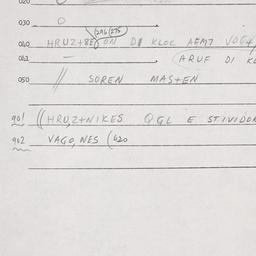 020
030 0
(286/275
040 HRUZ+BEGON DI KLOC AEM7 VOG+
041 — (ARUF DI KL
050 // SOREN MAS+EN
901 ((HRUZ+NIKES QGL E STIVIDOR
902 VAGO, NES (620